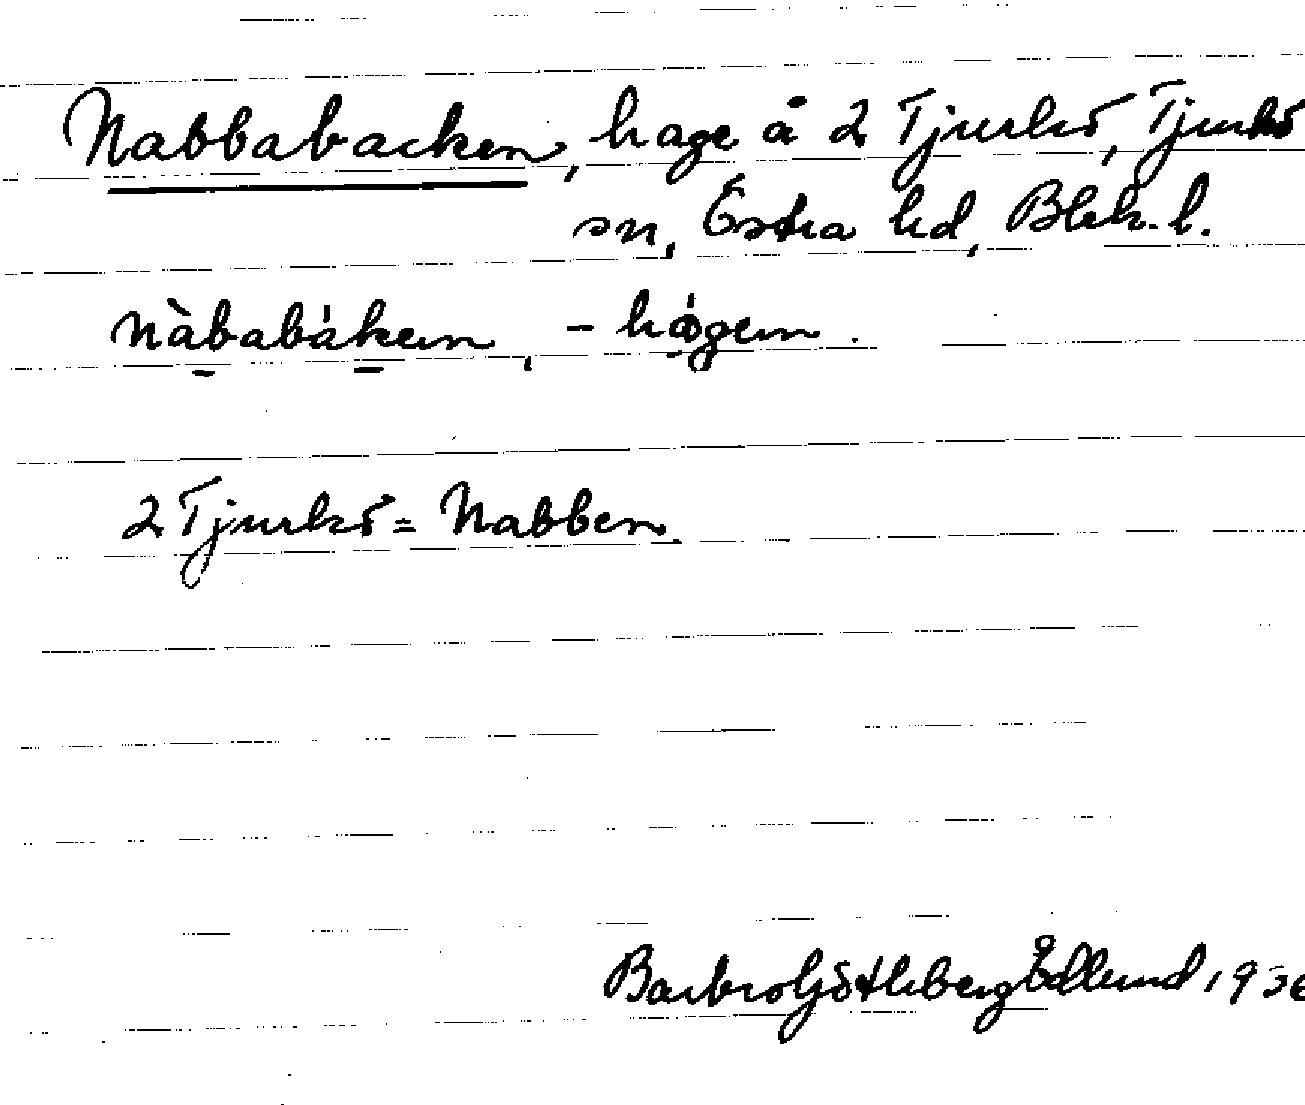 Nabbabacken, hage å 2 Tjurkö, Tjurkö
sn, Östra hd, Blek. l.
nàbabáken, - hágen.
2 Tjurkö = Nabben.
Barbro Götleberg Edlund 193